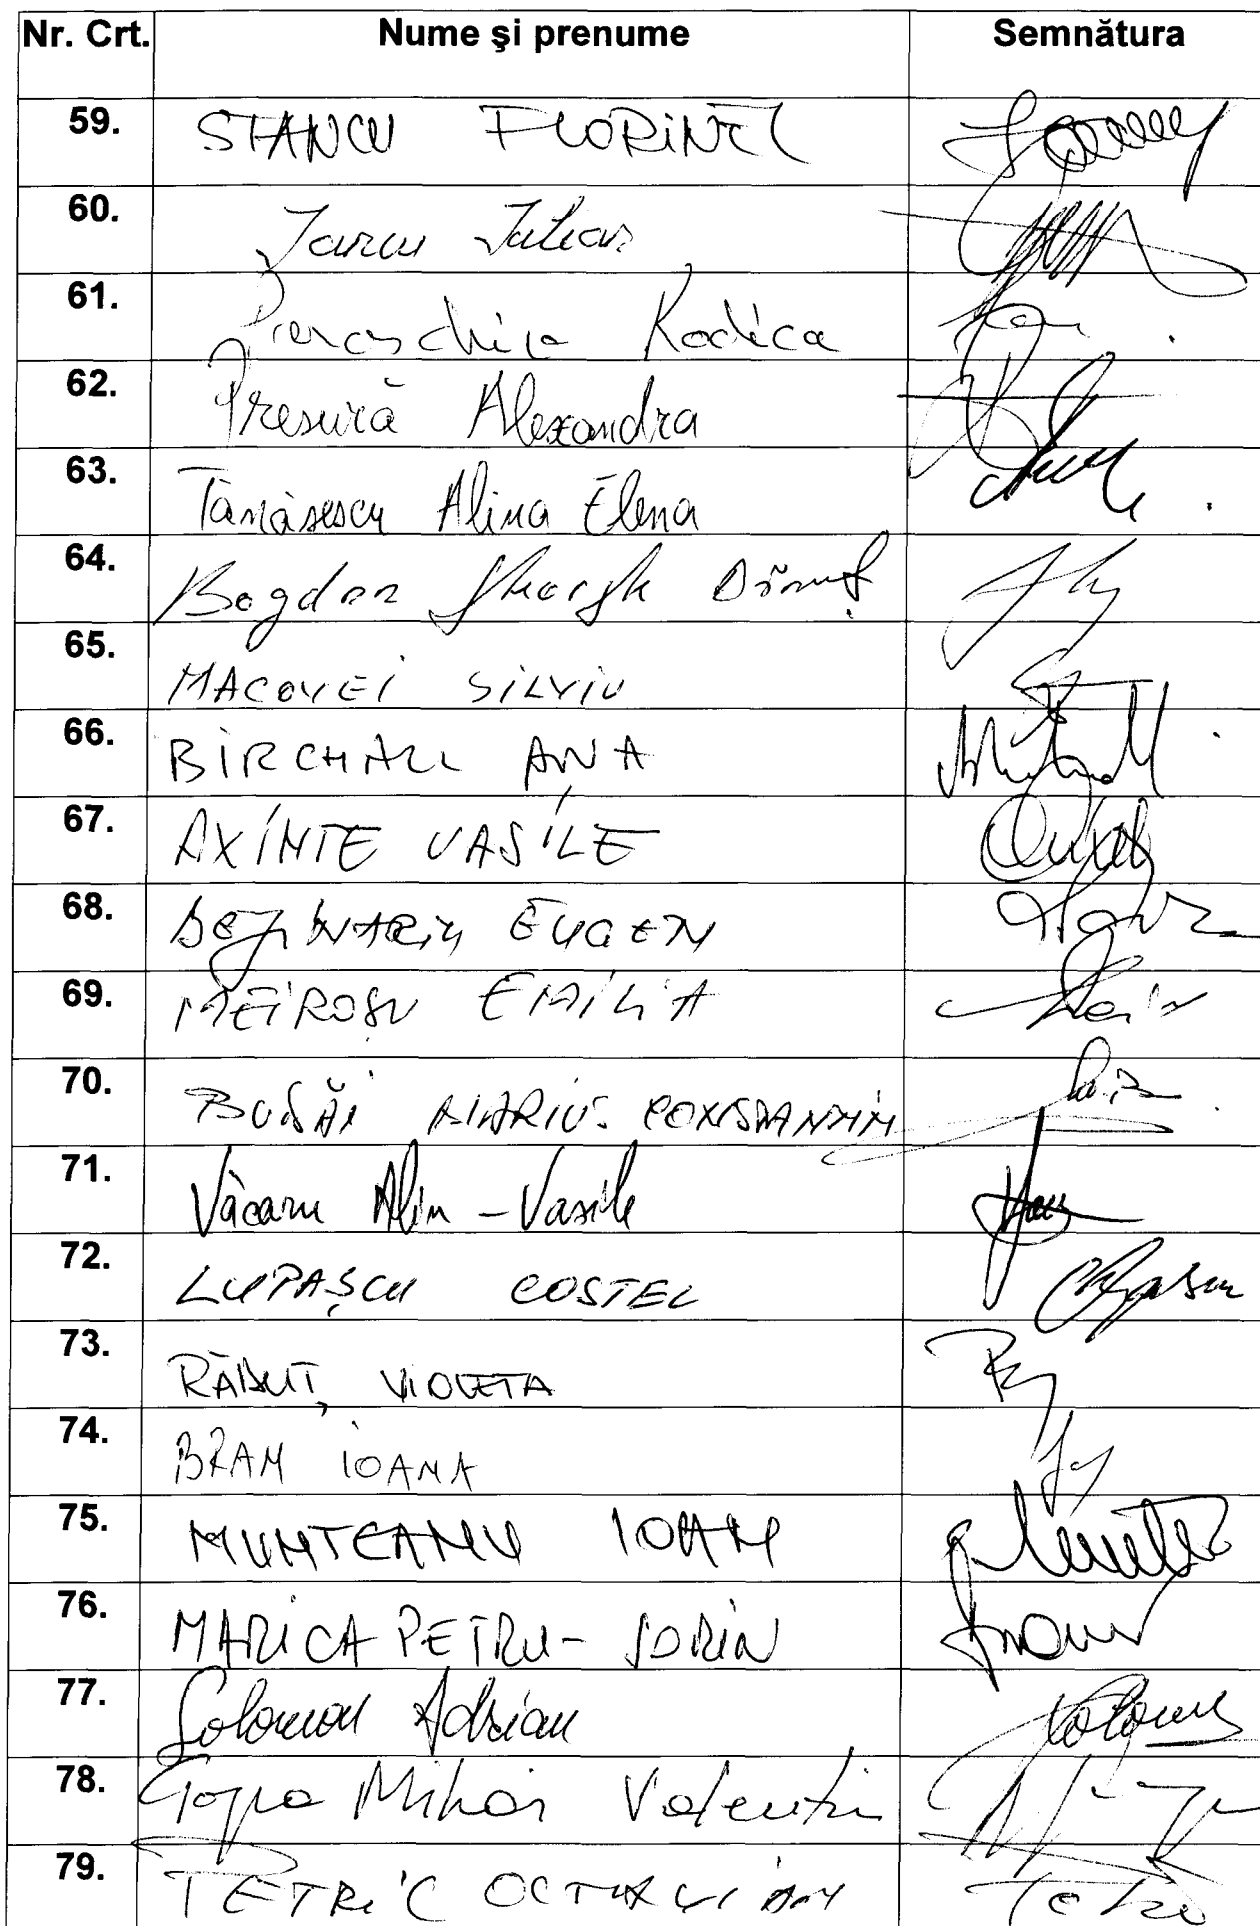 Nr. Crt. Nume şi prenume Semnătura
59. STANCU FLORINEL
60. Iancu Iulian
61. Paraschiva Rodica
62. Presură Alexandra
63. Tănăsescu Alina Elena
64. Bogdan Gheorghe Dănuț
65. MACOVEI SILVIU
66. BIRCHALL ANA
67. AXINTE VASILE
68. BEJINARIU EUGEN
69. MEIROȘU EMILIA
70. BUDĂI MARIUS CONSTANTIN
71. Văcaru Alin - Vasile
72. LUPAȘCU COSTEL
73. RĂDUȚ VIOLETA
74. BRAN IOANA
75. MUNTEANU IOAN
76. MARICA PETRU - SORIN
77. Solomon Adrian
78. Popa Mihai Valentin
79. PETRIC OCTAVIAN